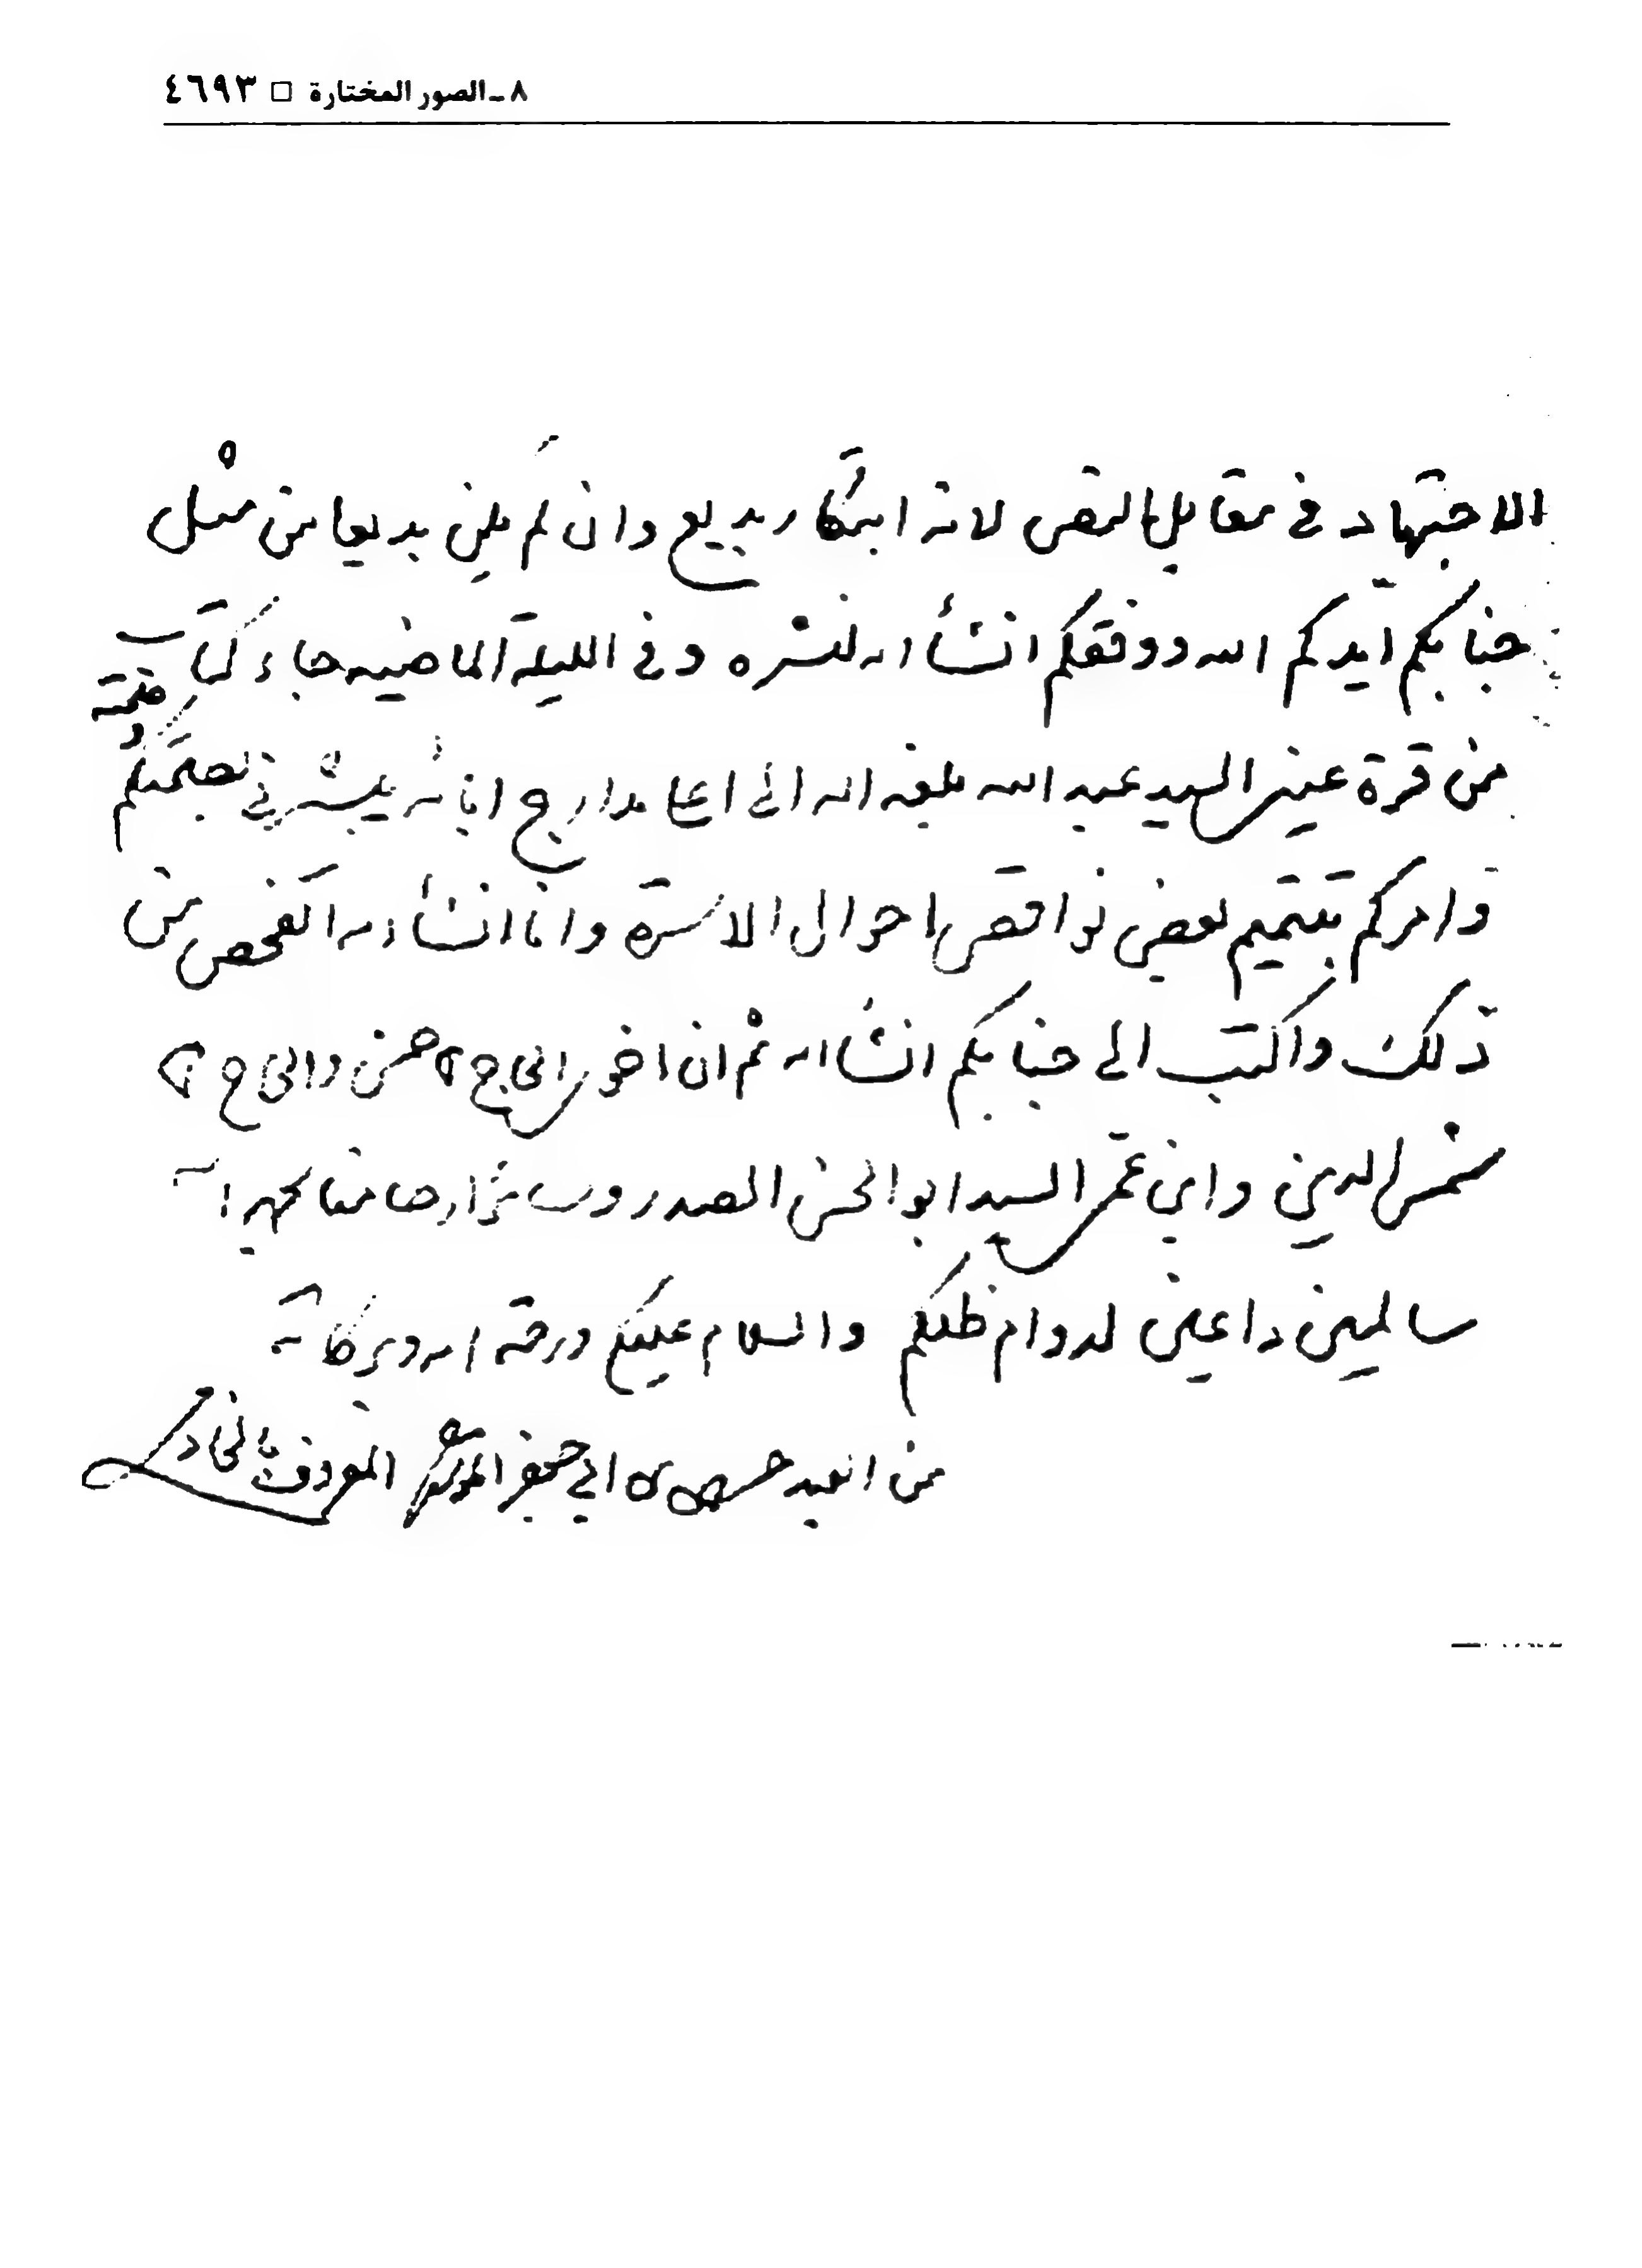 ٨ ـ الصور المختارة □ ٤٦٩٣
الاجتهاد في مقابل النص لانه ابتكار بديع وان لم يكن بديعا من مثل
جنابكم ايدكم الله ووفقكم انشأ الله لنشره وفي الليلة الماضيه جاء كتاب
من قرة عيني السيد عبد الله بلغه الله الى اعلا مدارج ابائه يبشرني بصحتكم
وامركم بتتميم بعض نواقص احوال الاسره وانا انشأ الله اتفحص من
ذلك واكتب الى جنابكم انشأ الله ثم ان اخوي الحاج حسن والحاج
شمس الدين وابن عمي السيد ابو الحسن الصدر وردوا معا بحمد الله
سالمين داعين لدوام ظلكم والسلام عليكم ورحمة الله وبركاته
من العبد ابي جعفر الموسوي المعروف بالخادم